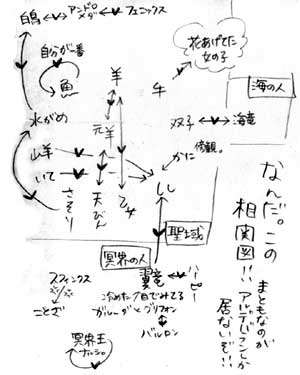 白鳥 アンドロメダ フェニックス
花あげてた
女の子
自分が一番
魚
羊
牛
海の人
水がめ
元羊
双子 海竜
修羅。
山羊
いて
さそり
天びん
乙女
かに
しし
聖域
冥界の人
翼竜 ハーピー
スフィンクス
冷めた目でみてる
ガルーダとグリフォン
バルロン
冥界王
ナルシー。
なんだ。この
相関図!!
まともなのが
アルデバランしか
居ないぞ!!